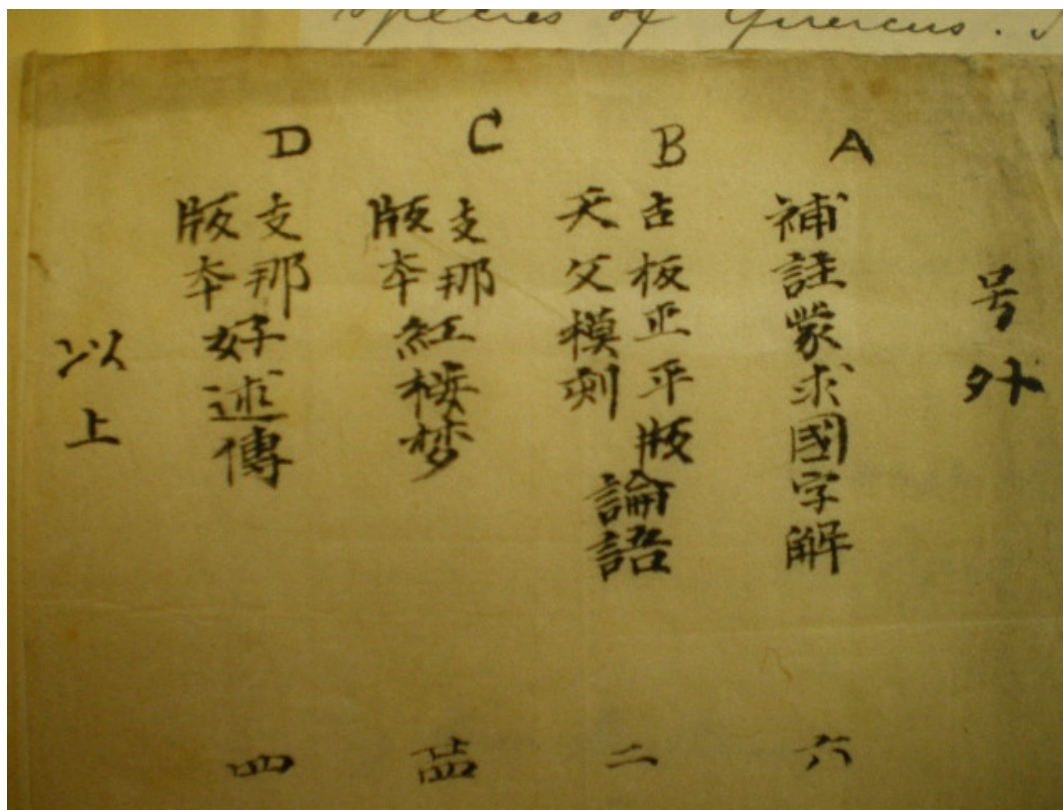 Species of Quercus.
号外
A 補註蒙求國字解 六
B 古板正平版
天父模刻
論語 二
C 支那
版本
紅楼梦 廿四
D 支那
版本
好逑傳 四
以上